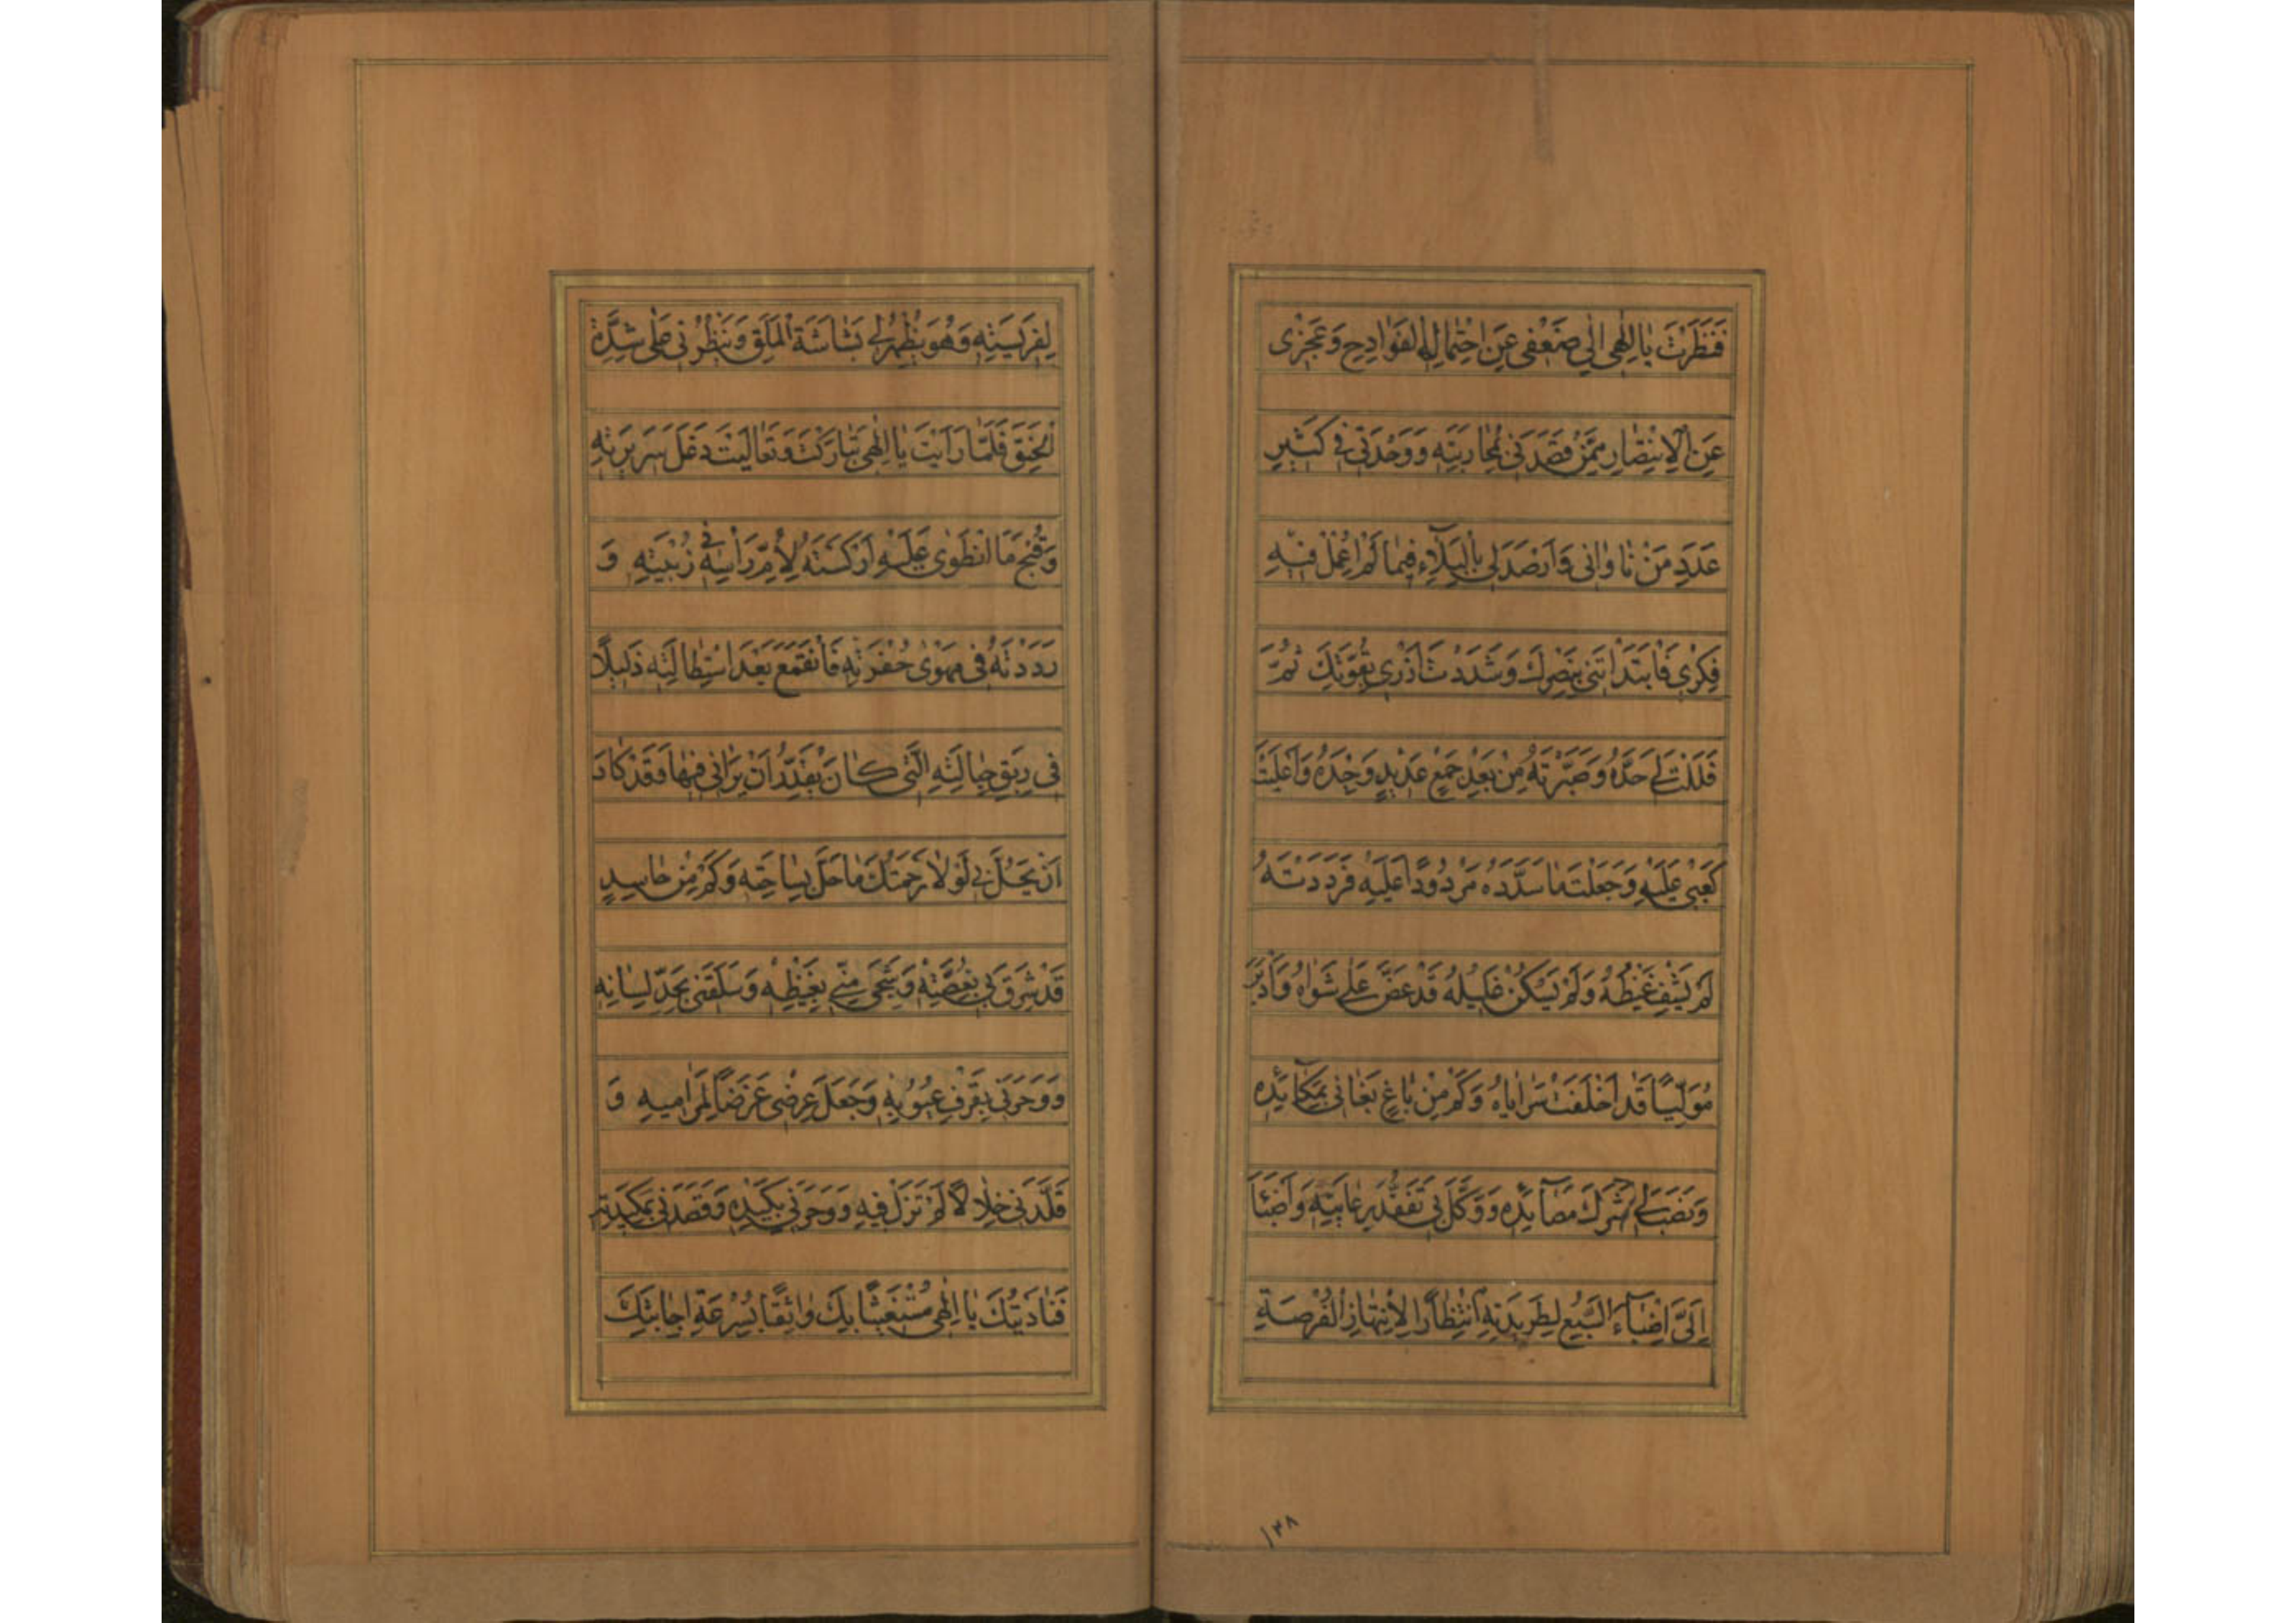 فَنَظَرْتَ يٰا اِلٰهى اِلىٰ ضَعْفى عَنِ احْتِمٰالِ الْفَوٰادِحِ وَعَجْزى
عَنِ الْاِنْتِصٰارِ مِمَّنْ قَصَدَنى بِمُحٰارَبَتِهِ وَوَحْدَتى فى كَثيرِ
عَدَدِ مَنْ نٰاوٰانى وَاَرْصَدَ لى بِالْبَلٰآءِ فيمٰا لَمْ اُعْمِلْ فيهِ
فِكْرى فَابْتَدَاْتَنى بِنَصْرِكَ وَشَدَدْتَ اَزْرى بِقُوَّتِكَ ثُمَّ
فَلَلْتَ لى حَدَّهُ وَصَيَّرْتَهُ مِنْ بَعْدِ جَمْعٍ عَديدٍ وَحْدَهُ وَاَعْلَيْتَ
كَعْبى عَلَيْهِ وَجَعَلْتَ مٰا سَدَّدَهُ مَرْدُودًا عَلَيْهِ فَرَدَدْتَهُ
لَمْ يَشْفِ غَيْظَهُ وَلَمْ يَسْكُنْ غَليلُهُ قَدْ عَضَّ عَلىٰ شَوٰاهُ وَاَدْبَرَ
مُوَلِّيًا قَدْ اَخْلَفَتْ سَرٰايٰاهُ وَكَمْ مِنْ بٰاغٍ بَغٰانى بِمَكٰآئِدِهِ
وَنَصَبَ لى شَرَكَ مَصٰآئِدِهِ وَوَكَّلَ بى تَفَقُّدَ رِعٰايَتِهِ وَاَضْبَاَ
اِلَىَّ اِضْبٰآءَ السَّبُعِ لِطَريدَتِهِ انْتِظٰارًا لِانْتِهٰازِ الْفُرْصَةِ
۱۳۸
لِفَريسَتِهِ وَهُوَ يُظْهِرُ لى بَشٰاشَةَ الْمَلَقِ وَيَنْظُرُنى عَلىٰ شِدَّةِ
الْحَنَقِ فَلَمّٰا رَاَيْتَ يٰا اِلٰهى تَبٰارَكْتَ وَتَعٰالَيْتَ دَغَلَ سَريرَتِهِ
وَقُبْحَ مَا انْطَوىٰ عَلَيْهِ اَرْكَسْتَهُ لِاُمِّ رَاْسِهِ فى زُبْيَتِهِ وَ
رَدَدْتَهُ فى مَهْوىٰ حُفْرَتِهِ فَانْقَمَعَ بَعْدَ اسْتِطٰالَتِهِ ذَليلًا
فى رِبَقِ حِبٰالَتِهِ الَّتى كٰانَ يُقَدِّرُ اَنْ يَرٰانى فيهٰا وَقَدْ كٰادَ
اَنْ يَحُلَّ بى لَوْلٰا رَحْمَتُكَ مٰا حَلَّ بِسٰاحَتِهِ وَكَمْ مِنْ حٰاسِدٍ
قَدْ شَرِقَ بى بِغُصَّتِهِ وَشَجِىَ مِنّى بِغَيْظِهِ وَسَلَقَنى بِحَدِّ لِسٰانِهِ
وَوَحَرَنى بِقَرْفِ عُيُوبِهِ وَجَعَلَ عِرْضى غَرَضًا لِمَرٰاميهِ وَ
قَلَّدَنى خِلٰالًا لَمْ تَزَلْ فيهِ وَوَحَرَنى بِكَيْدِهِ وَقَصَدَنى بِمَكيدَتِهِ
فَنٰادَيْتُكَ يٰا اِلٰهى مُسْتَغيثًا بِكَ وٰاثِقًا بِسُرْعَةِ اِجٰابَتِكَ